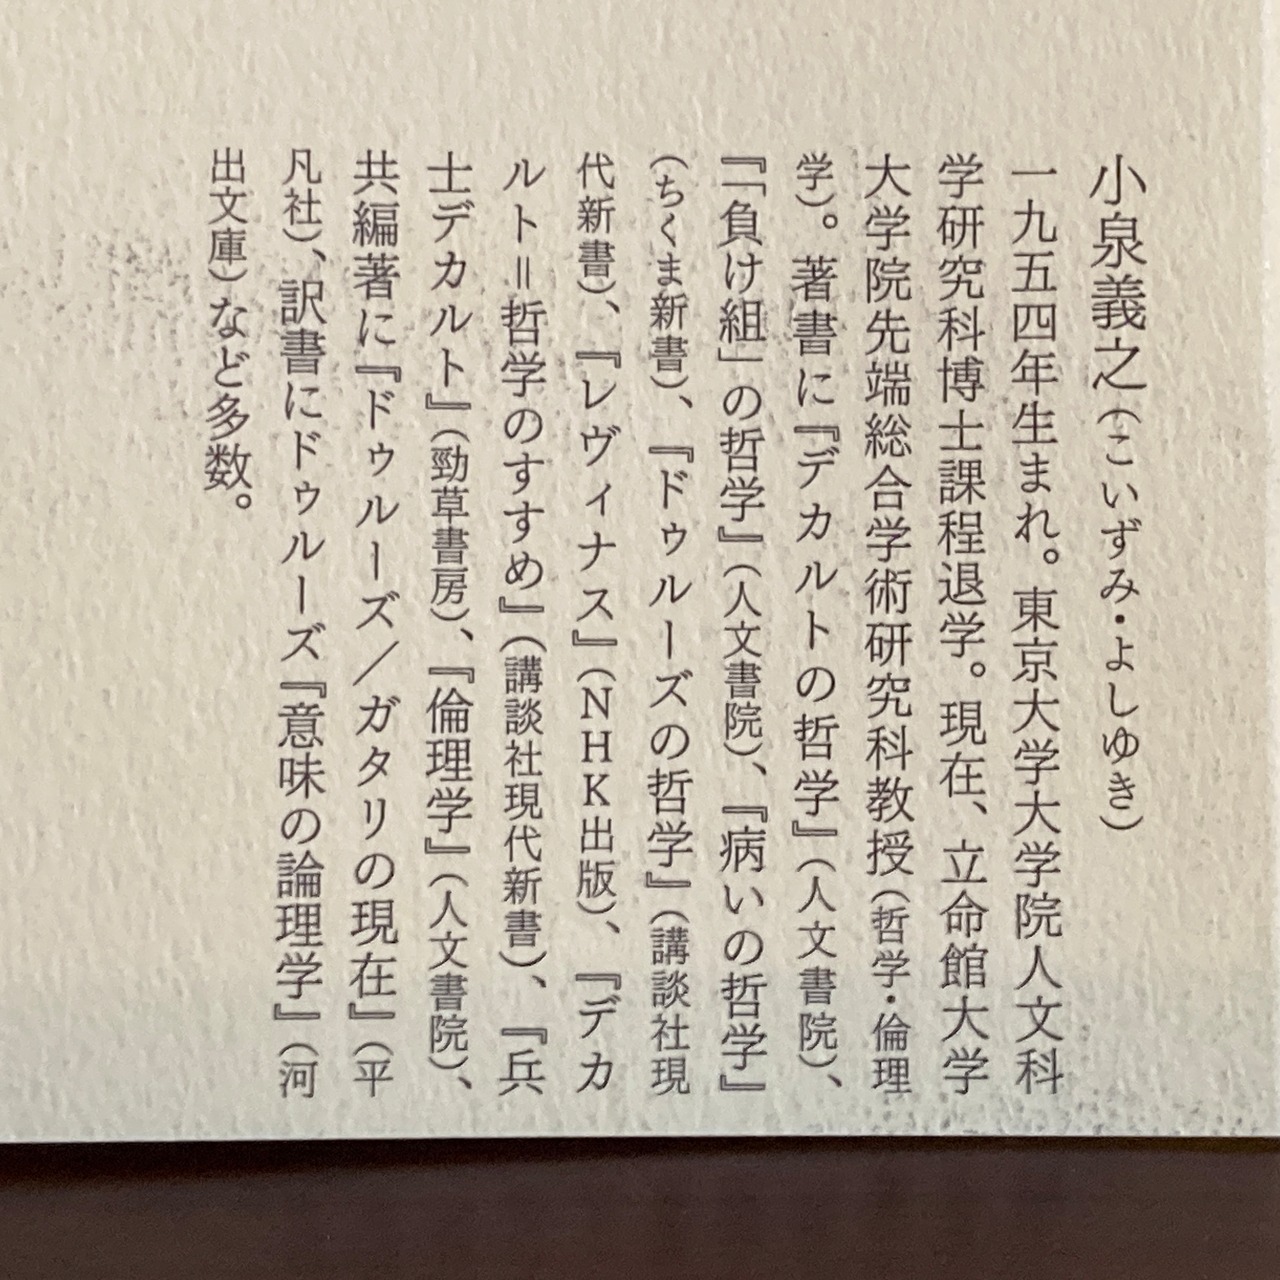 小泉義之(こいずみ・よしゆき)
一九五四年生まれ。東京大学大学院人文科
学研究科博士課程退学。現在、立命館大学
大学院先端総合学術研究科教授(哲学・倫理
学)。著書に『デカルトの哲学』(人文書院)、
『「負け組」の哲学』(人文書院)、『病いの哲学』
(ちくま新書)、『ドゥルーズの哲学』(講談社現
代新書)、『レヴィナス』(NHK出版)、『デカ
ルト=哲学のすすめ』(講談社現代新書)、『兵
士デカルト』(勁草書房)、『倫理学』(人文書院)、
共編著に『ドゥルーズ/ガタリの現在』(平
凡社)、訳書にドゥルーズ『意味の論理学』(河
出文庫)など多数。